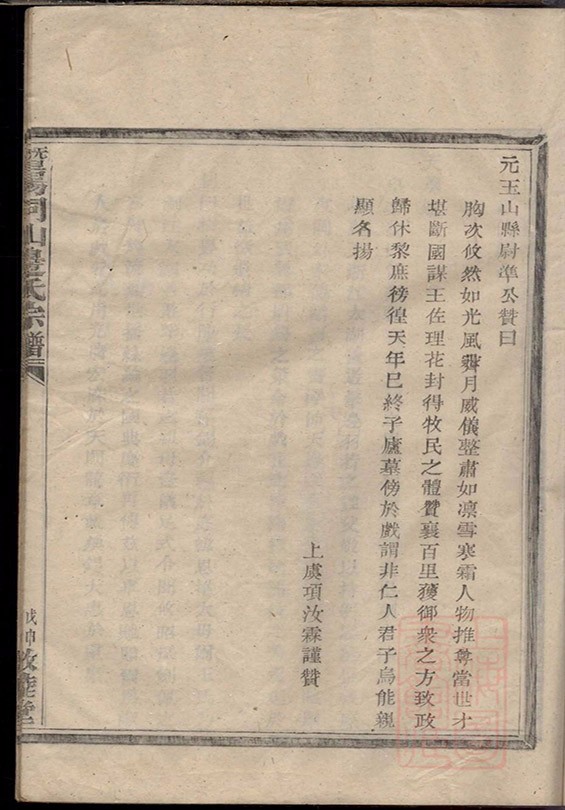 元玉山縣尉準公贊曰
胸次攸然如光風霽月威儀整肅如凛雪寒霜人物推尊當世才
堪斷國謀王佐理花封得牧民之體贊襄百里獲御衆之方致政
歸休黎庶徬徨天年已終子廬墓傍於戲謂非仁人君子烏能親
顯名揚
上虞項汝霖謹贊
暨陽同山邊氏宗譜
戊申敦睦堂